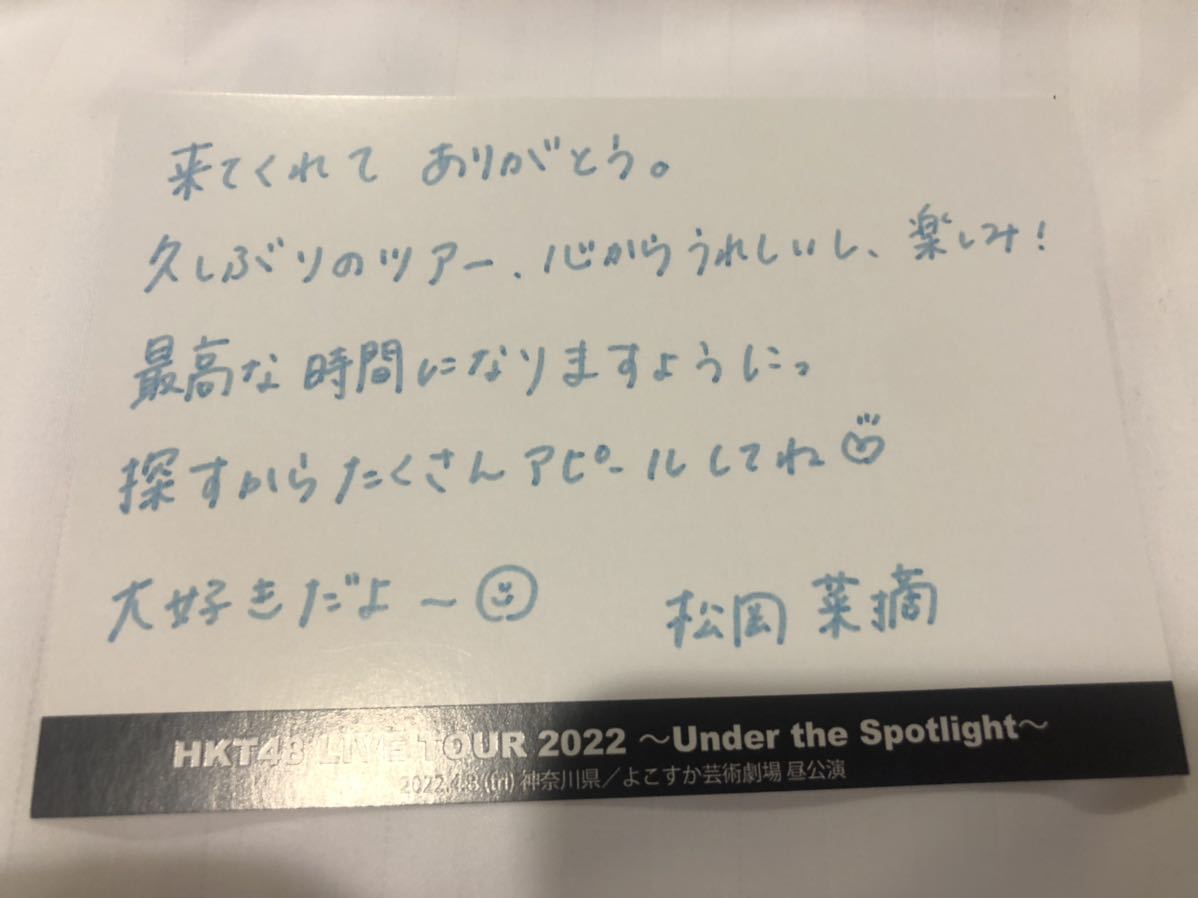 来てくれて ありがとう。
久しぶりのツアー、心からうれしいし、楽しみ!
最高な時間になりますようにっ
探すからたくさんアピールしてね
大好きだよ〜
松岡 菜摘
HKT48 LIVE TOUR 2022 〜Under the Spotlight〜
2022.4.8 (fri) 神奈川県／よこすか芸術劇場 昼公演